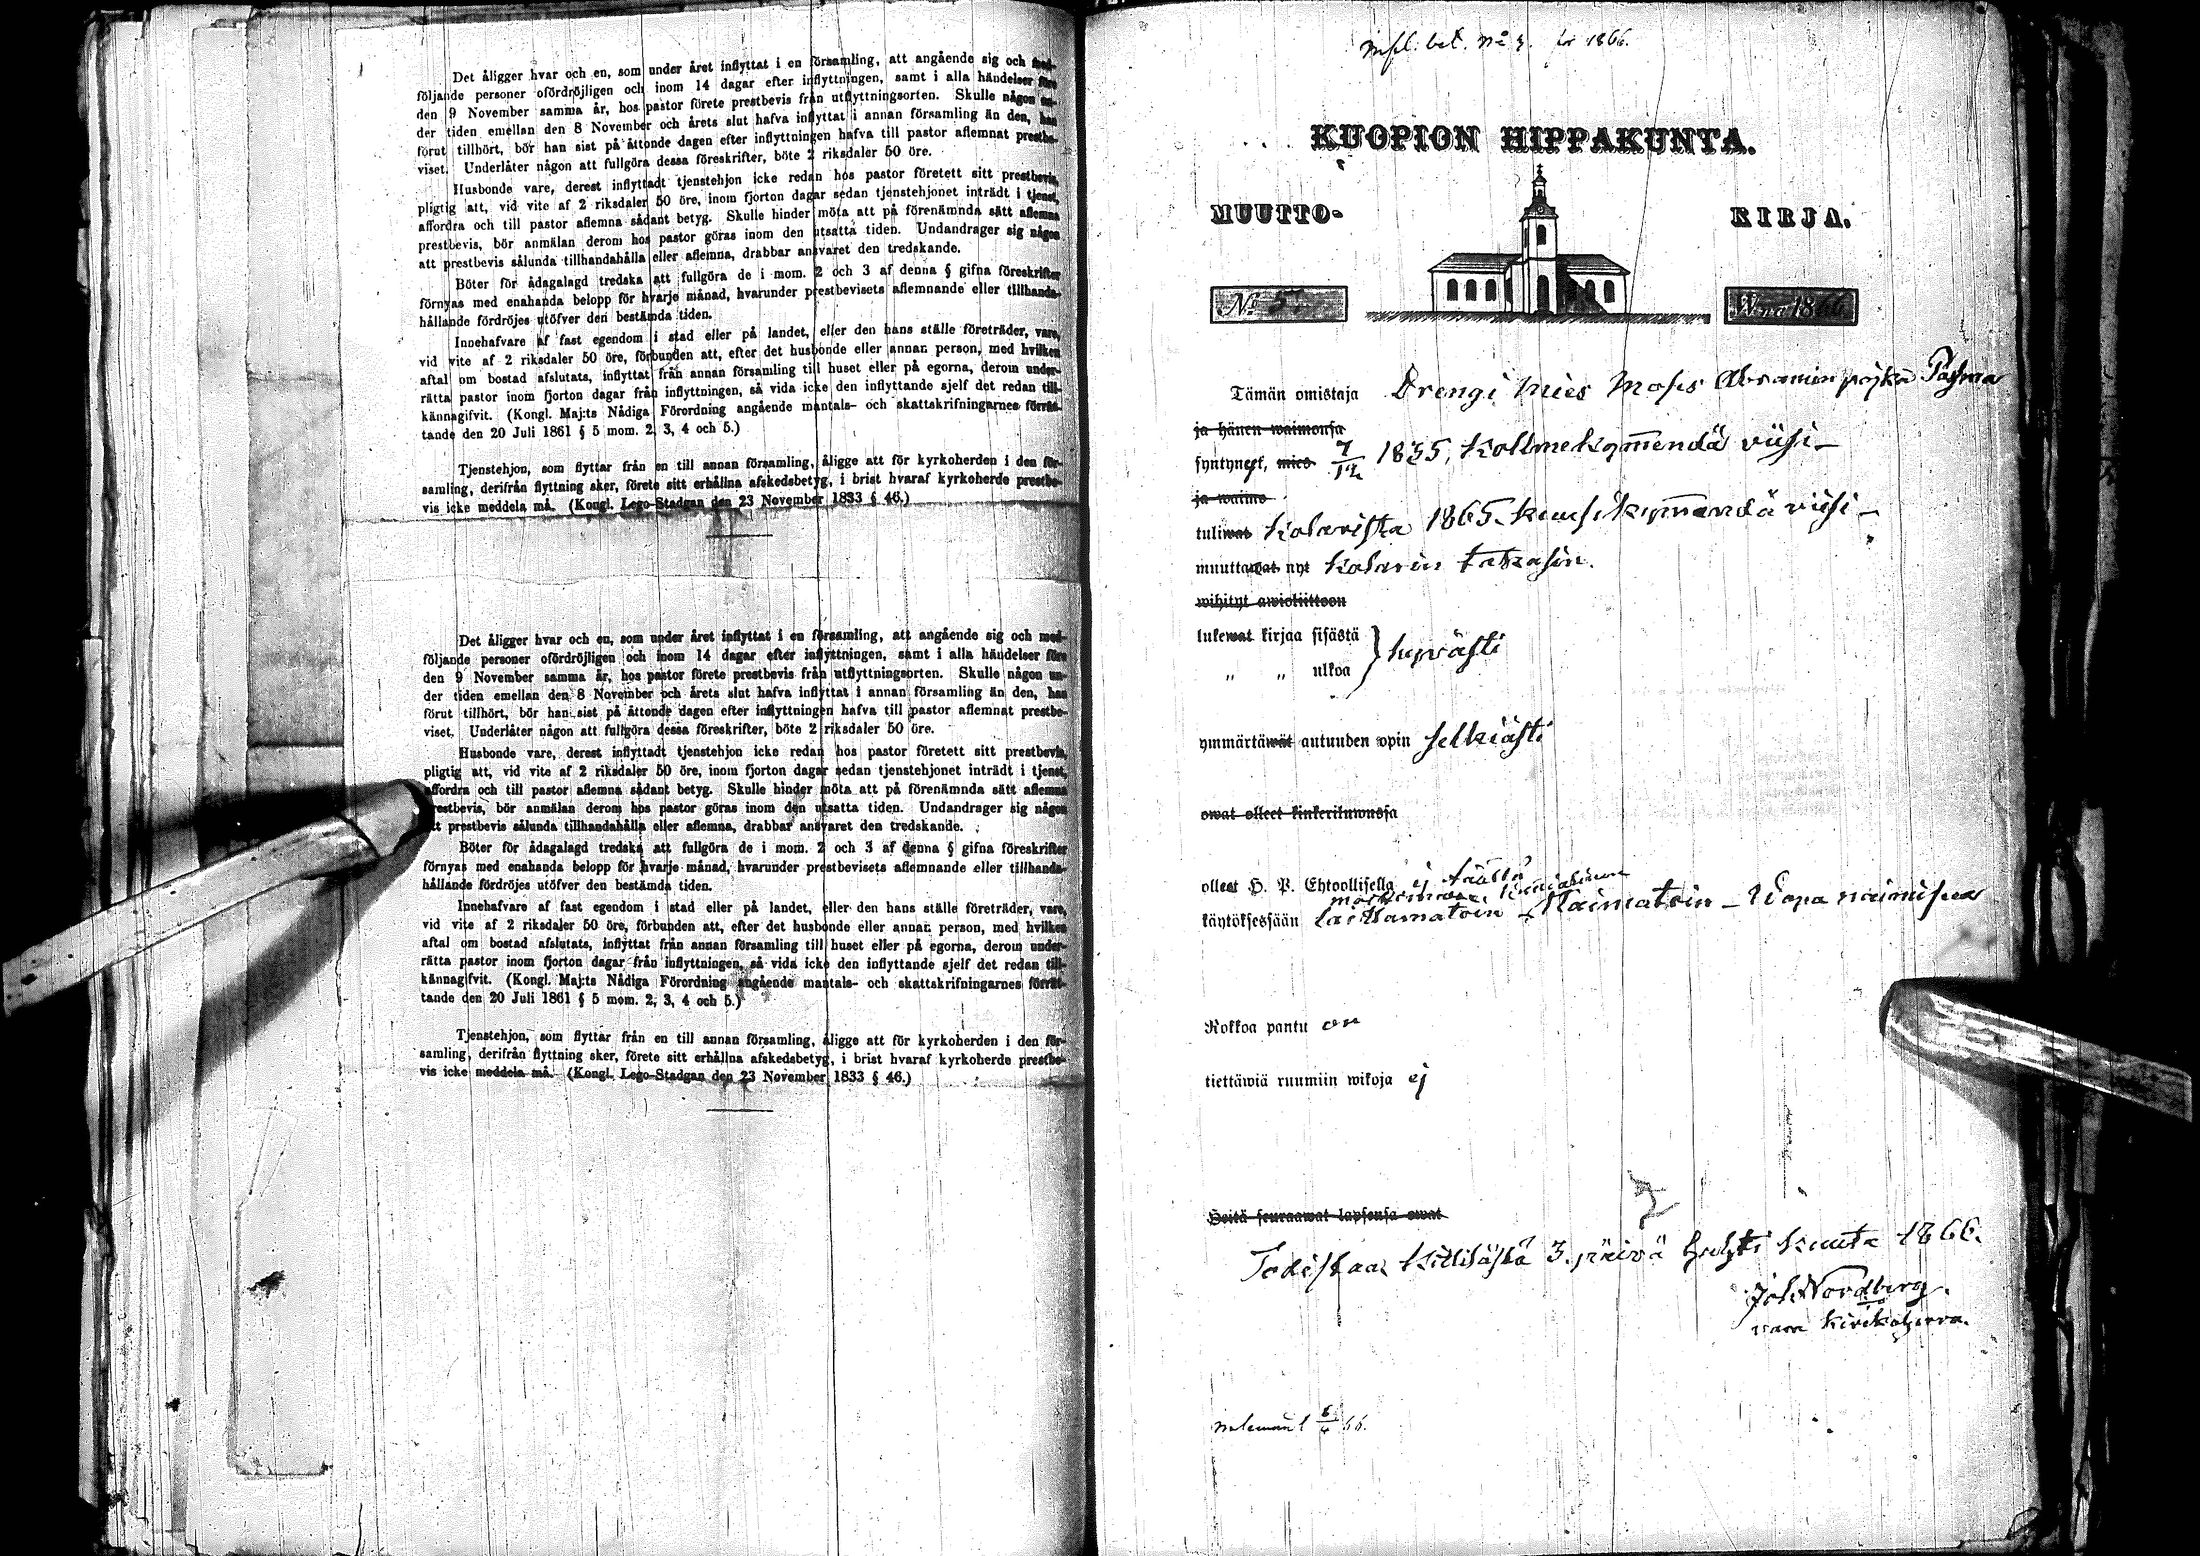 Det åligger hvar och en, som under året inflyttat i en församling, att angående sig och med-
följande personer ofördröjligen och inom 14 dagar efter inflyttningen, samt i alla händelser före
den 9 November samma år, hos pastor förete prestbevis från utflyttningsorten. Skulle någon un-
der tiden emellan den 8 November och årets slut hafva inflyttat i annan församling än den, han
förut tillhört, bör han sist på åttonde dagen efter inflyttningen hafva till pastor aflemnat prestbe-
viset. Underlåter någon att fullgöra dessa föreskrifter, böte 2 riksdaler 50 öre.
Husbonde vare, derest inflyttadt tjenstehjon icke redan hos pastor företett sitt prestbevis,
pligtig att, vid vite af 2 riksdaler 50 öre, inom fjorton dagar sedan tjenstehjonet inträdt i tjenst,
affordra och till pastor aflemna sådant betyg. Skulle hinder möta att på förenämnda sätt aflemna
prestbevis, bör anmälan derom hos pastor göras inom den utsatta tiden. Undandrager sig någon
att prestbevis sålunda tillhandahålla eller aflemna, drabbar ansvaret den tredskande.
Böter för ådagalagd tredska att fullgöra de i mom. 2 och 3 af denna § gifna föreskrifter
förnyas med enahanda belopp för hvarje månad, hvarunder prestbevisets aflemnande eller tillhanda-
hållande fördröjes utöfver den bestämda tiden.
Innehafvare af fast egendom i stad eller på landet, eller den hans ställe företräder, vare,
vid vite af 2 riksdaler 50 öre, förbunden att, efter det husbonde eller annan person, med hvilken
aftal om bostad afslutats, inflyttat från annan församling till huset eller på egorna, derom under-
rätta pastor inom fjorton dagar från inflyttningen, så vida icke den inflyttande sjelf det redan till-
kännagifvit. (Kongl. Maj:ts Nådiga Förordning angående mantals- och skattskrifningarnes förrät-
tande den 20 Juli 1861 § 5 mom. 2, 3, 4 och 5.)
Tjenstehjon, som flyttar från en till annan församling, åligge att för kyrkoherden i den för-
samling, derifrån flyttning sker, förete sitt erhållna afskedsbetyg, i brist hvaraf kyrkoherde prestbe-
vis icke meddela må. (Kongl. Lego-Stadgan den 23 November 1833 § 46.)
Det åligger hvar och en, som under året inflyttat i en församling, att angående sig och med-
följande personer ofördröjligen och inom 14 dagar efter inflyttningen, samt i alla händelser före
den 9 November samma år, hos pastor förete prestbevis från utflyttningsorten. Skulle någon un-
der tiden emellan den 8 November och årets slut hafva inflyttat i annan församling än den, han
förut tillhört, bör han sist på åttonde dagen efter inflyttningen hafva till pastor aflemnat prestbe-
viset. Underlåter någon att fullgöra dessa föreskrifter, böte 2 riksdaler 50 öre.
Husbonde vare, derest inflyttadt tjenstehjon icke redan hos pastor företett sitt prestbevis,
pligtig att, vid vite af 2 riksdaler 50 öre, inom fjorton dagar sedan tjenstehjonet inträdt i tjenst,
affordra och till pastor aflemna sådant betyg. Skulle hinder möta att på förenämnda sätt aflemna
prestbevis, bör anmälan derom hos pastor göras inom den utsatta tiden. Undandrager sig någon
att prestbevis sålunda tillhandahålla eller aflemna, drabbar ansvaret den tredskande.
Böter för ådagalagd tredska att fullgöra de i mom. 2 och 3 af denna § gifna föreskrifter
förnyas med enahanda belopp för hvarje månad, hvarunder prestbevisets aflemnande eller tillhanda-
hållande fördröjes utöfver den bestämda tiden.
Innehafvare af fast egendom i stad eller på landet, eller den hans ställe företräder, vare,
vid vite af 2 riksdaler 50 öre, förbunden att, efter det husbonde eller annan person, med hvilken
aftal om bostad afslutats, inflyttat från annan församling till huset eller på egorna, derom under-
rätta pastor inom fjorton dagar från inflyttningen, så vida icke den inflyttande sjelf det redan till-
kännagifvit. (Kongl. Maj:ts Nådiga Förordning angående mantals- och skattskrifningarnes förrät-
tande den 20 Juli 1861 § 5 mom. 2, 3, 4 och 5.)
Tjenstehjon, som flyttar från en till annan församling, åligge att för kyrkoherden i den för-
samling, derifrån flyttning sker, förete sitt erhållna afskedsbetyg, i brist hvaraf kyrkoherde prestbe-
vis icke meddela må. (Kongl. Lego-Stadgan den 23 November 1833 § 46.)
Infl. bet. No 3. för 1866.
KUOPION HIPPAKUNTA.
MUUTTO- KIRJA.
No 57 W:na 1866
Tämän omistaja Drengi mies Moses Abramin pojka
ja hänen waimonsa
syntyneet, mies 7/12 1835, kolmekymmendä viisi –
ja waimo
tuliwat Kolarista 1865. kuusikymmendä viisi –
muuttawat nyt Kolarin takasin.
wihityt awioliittoon
lukewat kirjaa sisästä
„ „ ulkoa } hyvästi
ymmärtäwät autuuden opin selkiästi
owat olleet kinkerilunussa
olleet H. P. Ehtoollisella ej täällä
käytöksessään laittamatoin – Naimatoin – Wapa naimisen
Rokkoa pantu on
tiettäwiä ruumiin wikoja ej
Heitä seuraawat lapsensa owat
Todistaa Kittilästä 3. päivä Huhti kuuta 1866.
Joh Nordberg.
vara kirkoherra.
6/4 66.